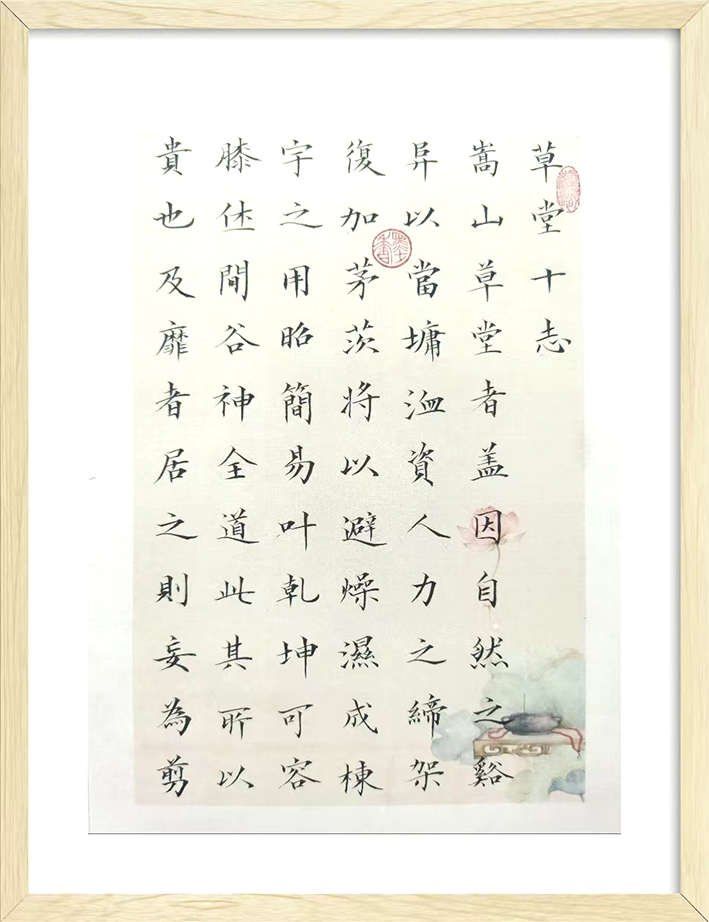 草堂十志
嵩山草堂者盖因自然之谿
异以當墉洫資人力之締架
復加茅茨將以避燥濕成棟
宇之用昭簡易叶乾坤可容
膝休間谷神全道此其所以
貴也及靡者居之則妄為剪